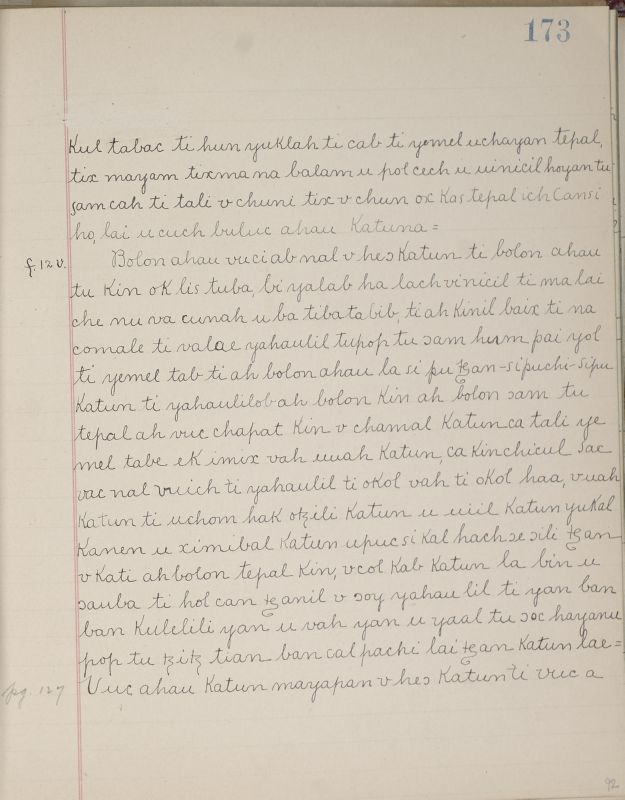 173
Kul tabac ti hun yuklah ti cab ti yemel uchayan tepal,
tix mayam tixma na balam u pol cech u uinicil hoyan tu
ɔam cah ti tali v chuni tix v chun ox Kas tepal ich Cansi
ho, lai u cuch buluc ahau Katuna =
f. 12 v.
Bolon ahau vuciab nal v heɔ Katun ti bolon ahau
tu Kin oK lis tuba, bi yalab ha lach vinicil ti ma lai
che nu va cunah u ba tiba ta bib, ti ah Kinil baix ti na
comale ti valae yahaulil tupop tu ɔam hum pai yol
ti yemel tab ti ah bolon ahau la si pu ꜩan - sipuchi - sipu
Katun ti yahaulilob ah bolon Kin ah bolon ɔam tu
tepal ah vuc chapat Kin v chamal Katun ca tali ye
mel tabe eK imix vah uuah Katun, ca Kinchicul sac
vac nal vuich ti yahaulil ti oKol vah ti oKol haa, vuah
Katun ti uchom hak oꜩili Katun u uiil Katun yuKal
Kanen u ximibal Katun upucsi Kal hach ɔe ɔili ꜩan
v Kati ah bolon tepal Kin, v col Kab Katun la bin u
ɔauba ti hol can ꜩanil v ɔoy yahau lil ti yan ban
ban Kulclili yan u vah yan u yaal tu ɔoc hayanu
pop tu ꜩiꜩ tian ban cal pachi lai ꜩan Katun lae =
pg. 127
Vuc ahau Katun mayapan v heɔ Katun ti vuc a
92